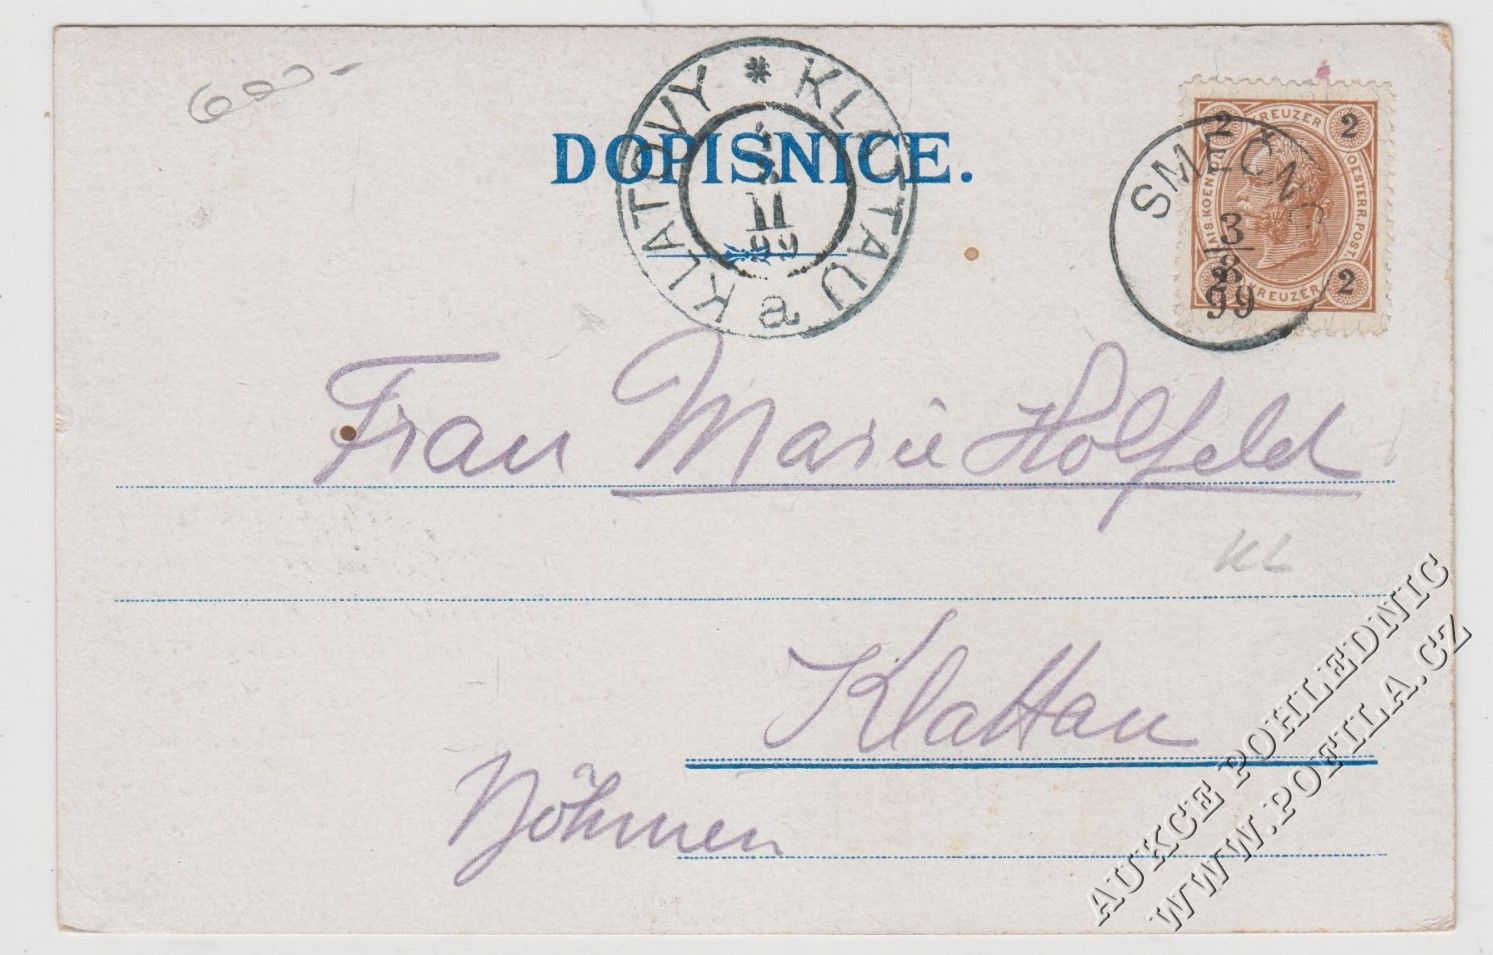 600-
DOPISNICE.
KLATTAU * KLATOVY
11
99
KAIS. KOENIGL. OESTERR. POST
KREUZER
2 2
SMEČNO
3
8
99
2 2
KREUZER
Frau Marie Holfeld
KL
Klattau
Böhmen
AUKCE POHLEDNIC
WWW.POFILA.CZ